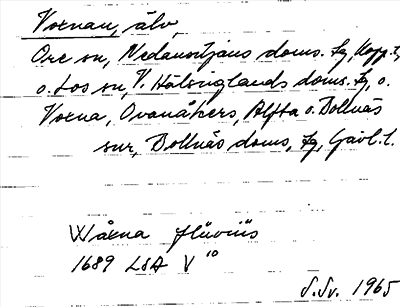 Voxnan, älv,
Ore sn, Nedansiljans doms. sg, Kopp. l,
o. Los sn, V. Hälsinglands doms. sg, o.
Voxna, Ovanåkers, Alfta o. Bollnäs
snr, Bollnäs doms. sg, Gävl. l.
Wåxna flüviüs
1689 LSA V 10
S. Sv. 1965